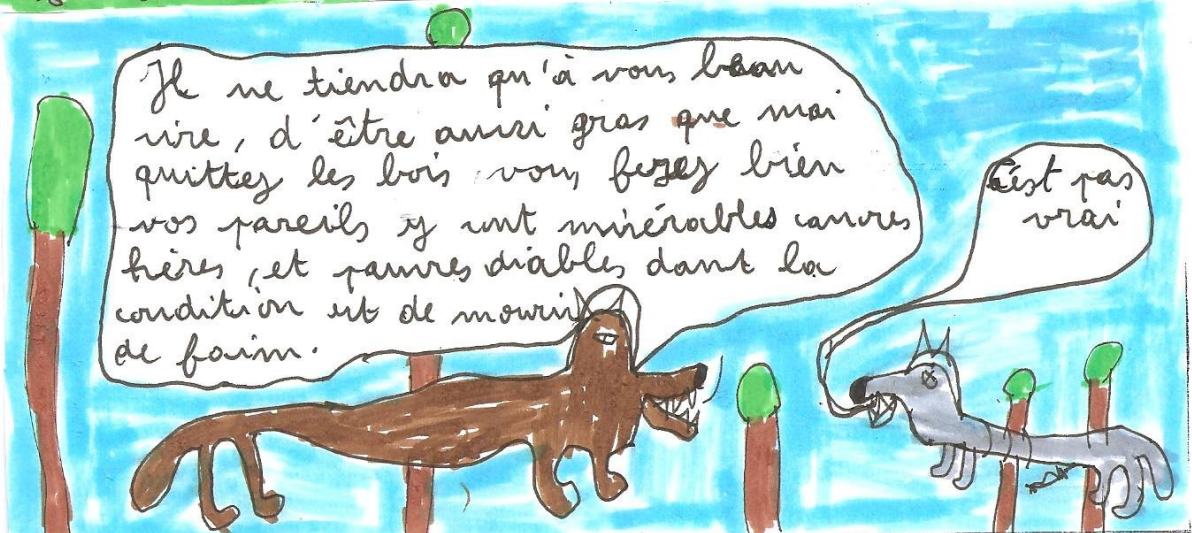 Il ne tiendra qu'à vous beau
sire, d'être aussi gras que moi
quittez les bois vous ferez bien
vos pareils y sont misérables cancres
hères, et pauvres diables dont la
condition est de mourir
de faim.
C'est pas
vrai